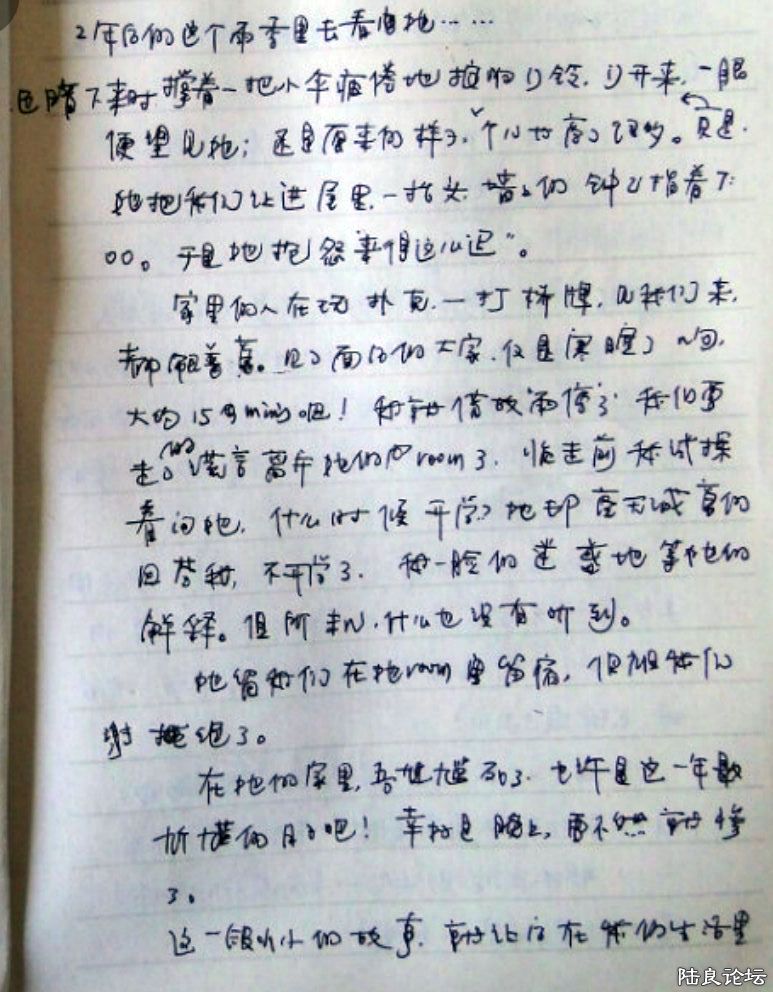 2年后的这个雨季里去看她……
色暗下来时撑着一把小伞疲倦地按响门铃.门开来,一眼
便望见她;还是原来的样子,个儿好高了许多。只是.
她把我们让进屋里.一抬头.墙上的钟已指着7:
00。于是她抱怨来得这么迟"。
家里的人在玩扑克.一打桥牌,见我们来,
都的大家.仅是寒暄了一句.
大约15分mins吧!我就借故"雨停了"我们要
走的谎言离开她们的room了.临走前我试探
着问她.什么时候开学?她却的
回答我,不开学了.我一脸的迷惑地等她的
解释。但所来.什么也没有听到。
她留我们在她room里留宿,但我们
拒绝了。
在她的家里,死了.也许是这一年最
尴尬的日子吧!幸好是晚上,要不然就惨
了。
这一很小的故事.就让它在我的生活里
陆良论坛